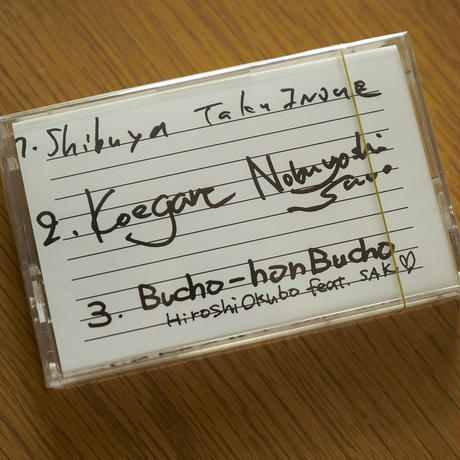 1. Shibuya Taku INOUE
2. Koegare Nobuyoshi Sano
3. Bucho-honBucho
Hiroshi Okubo feat. SAK♡